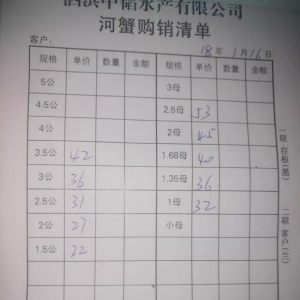 泗洪中储水产有限公司
河蟹购销清单
客户: 18年1月16日
规格 单价 数量 金额 规格 单价 数量 金额
5公 3母
4.5公 2.5母 53
4公 2母 45
3.5公 42 1.68母 40
3公 36 1.35母 36
2.5公 31 1母 32
2公 27 小母
1.5公 22
一联 存根(黑)
二联 客户(三)